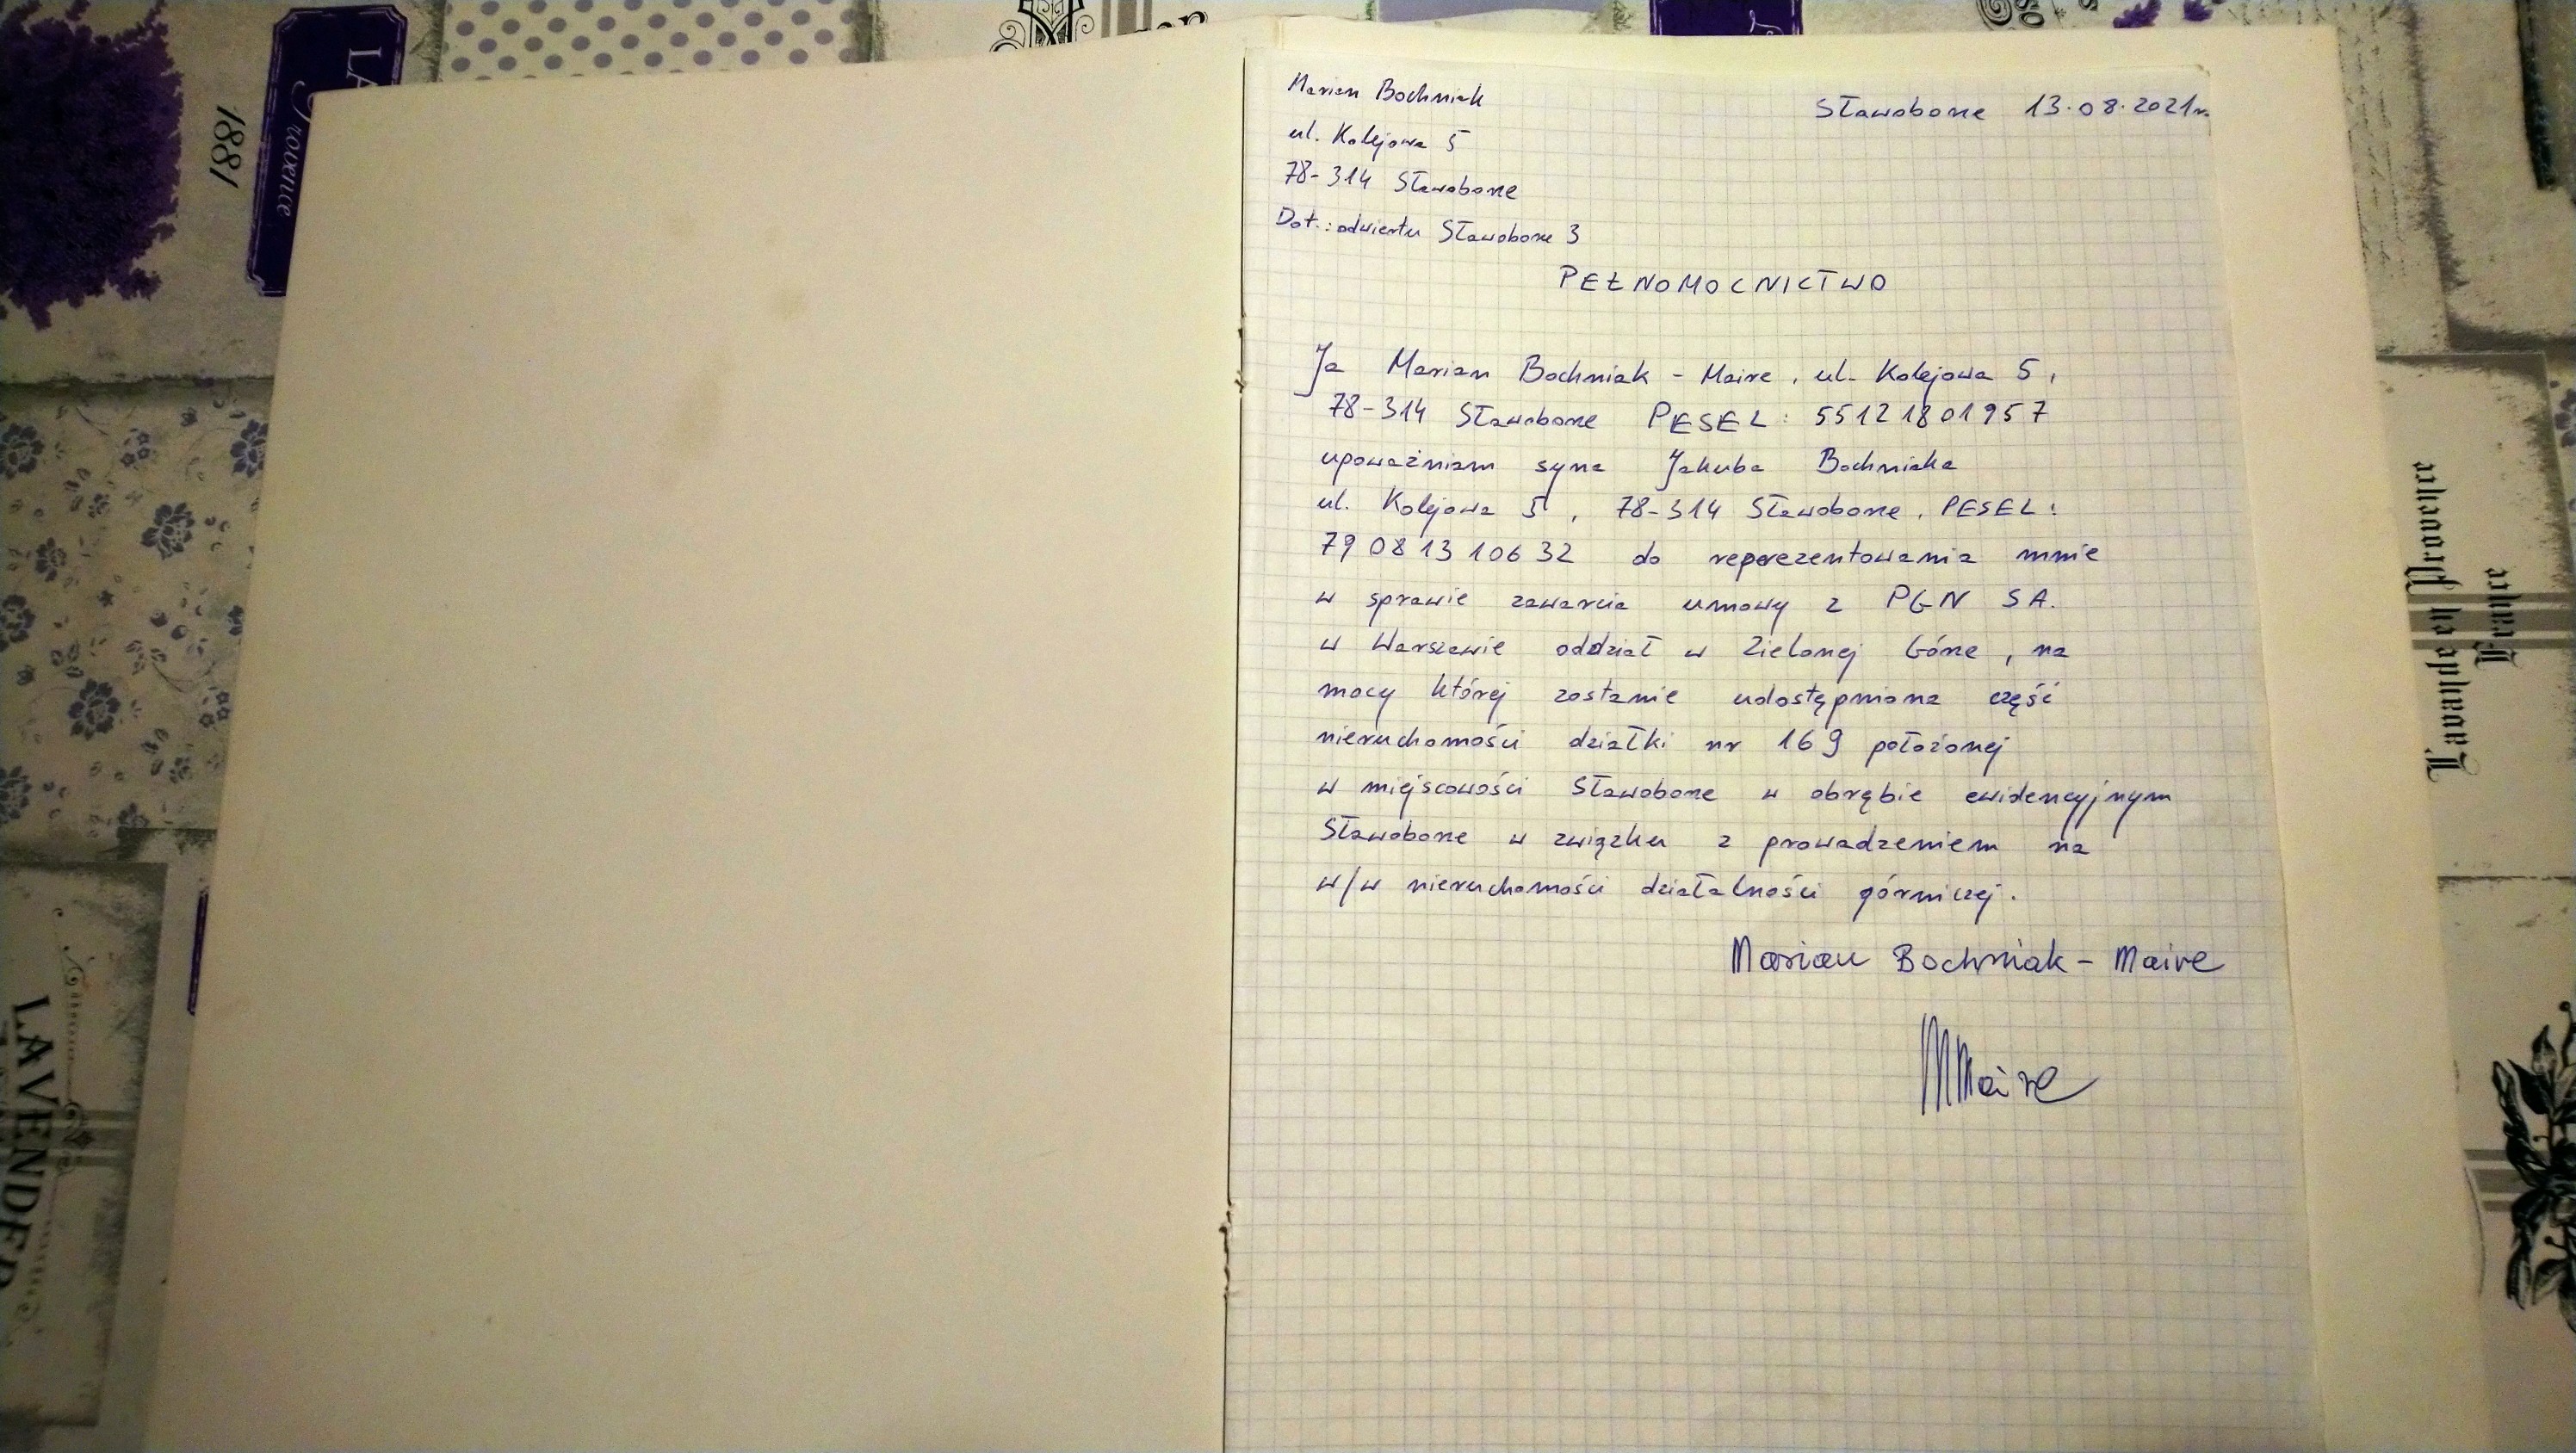 LA
Provence
1881
Marian Bochniak
Sławoborze 13.08.2021r.
ul. Kolejowa 5
78-314 Sławoborze
Dot.: odwiertu Sławoborze 3
PEŁNOMOCNICTWO
Ja Marian Bochniak - Maire, ul. Kolejowa 5,
78-314 Sławoborze PESEL: 55121801957
upoważniam syna Jakuba Bochniaka
ul. Kolejowa 5, 78-314 Sławoborze, PESEL:
79081310632 do reprezentowania mnie
w sprawie zawarcia umowy z PGN SA.
w Warszawie oddział w Zielonej Górze, na
mocy której zostanie udostępniona część
nieruchomości działki nr 169 położonej
w miejscowości Sławoborze w obrębie ewidencyjnym
Sławoborze w związku z prowadzeniem na
w/w nieruchomości działalności górniczej.
Marian Bochniak - Maire
MMaire
LAVENDER
Lavande en Provence
France